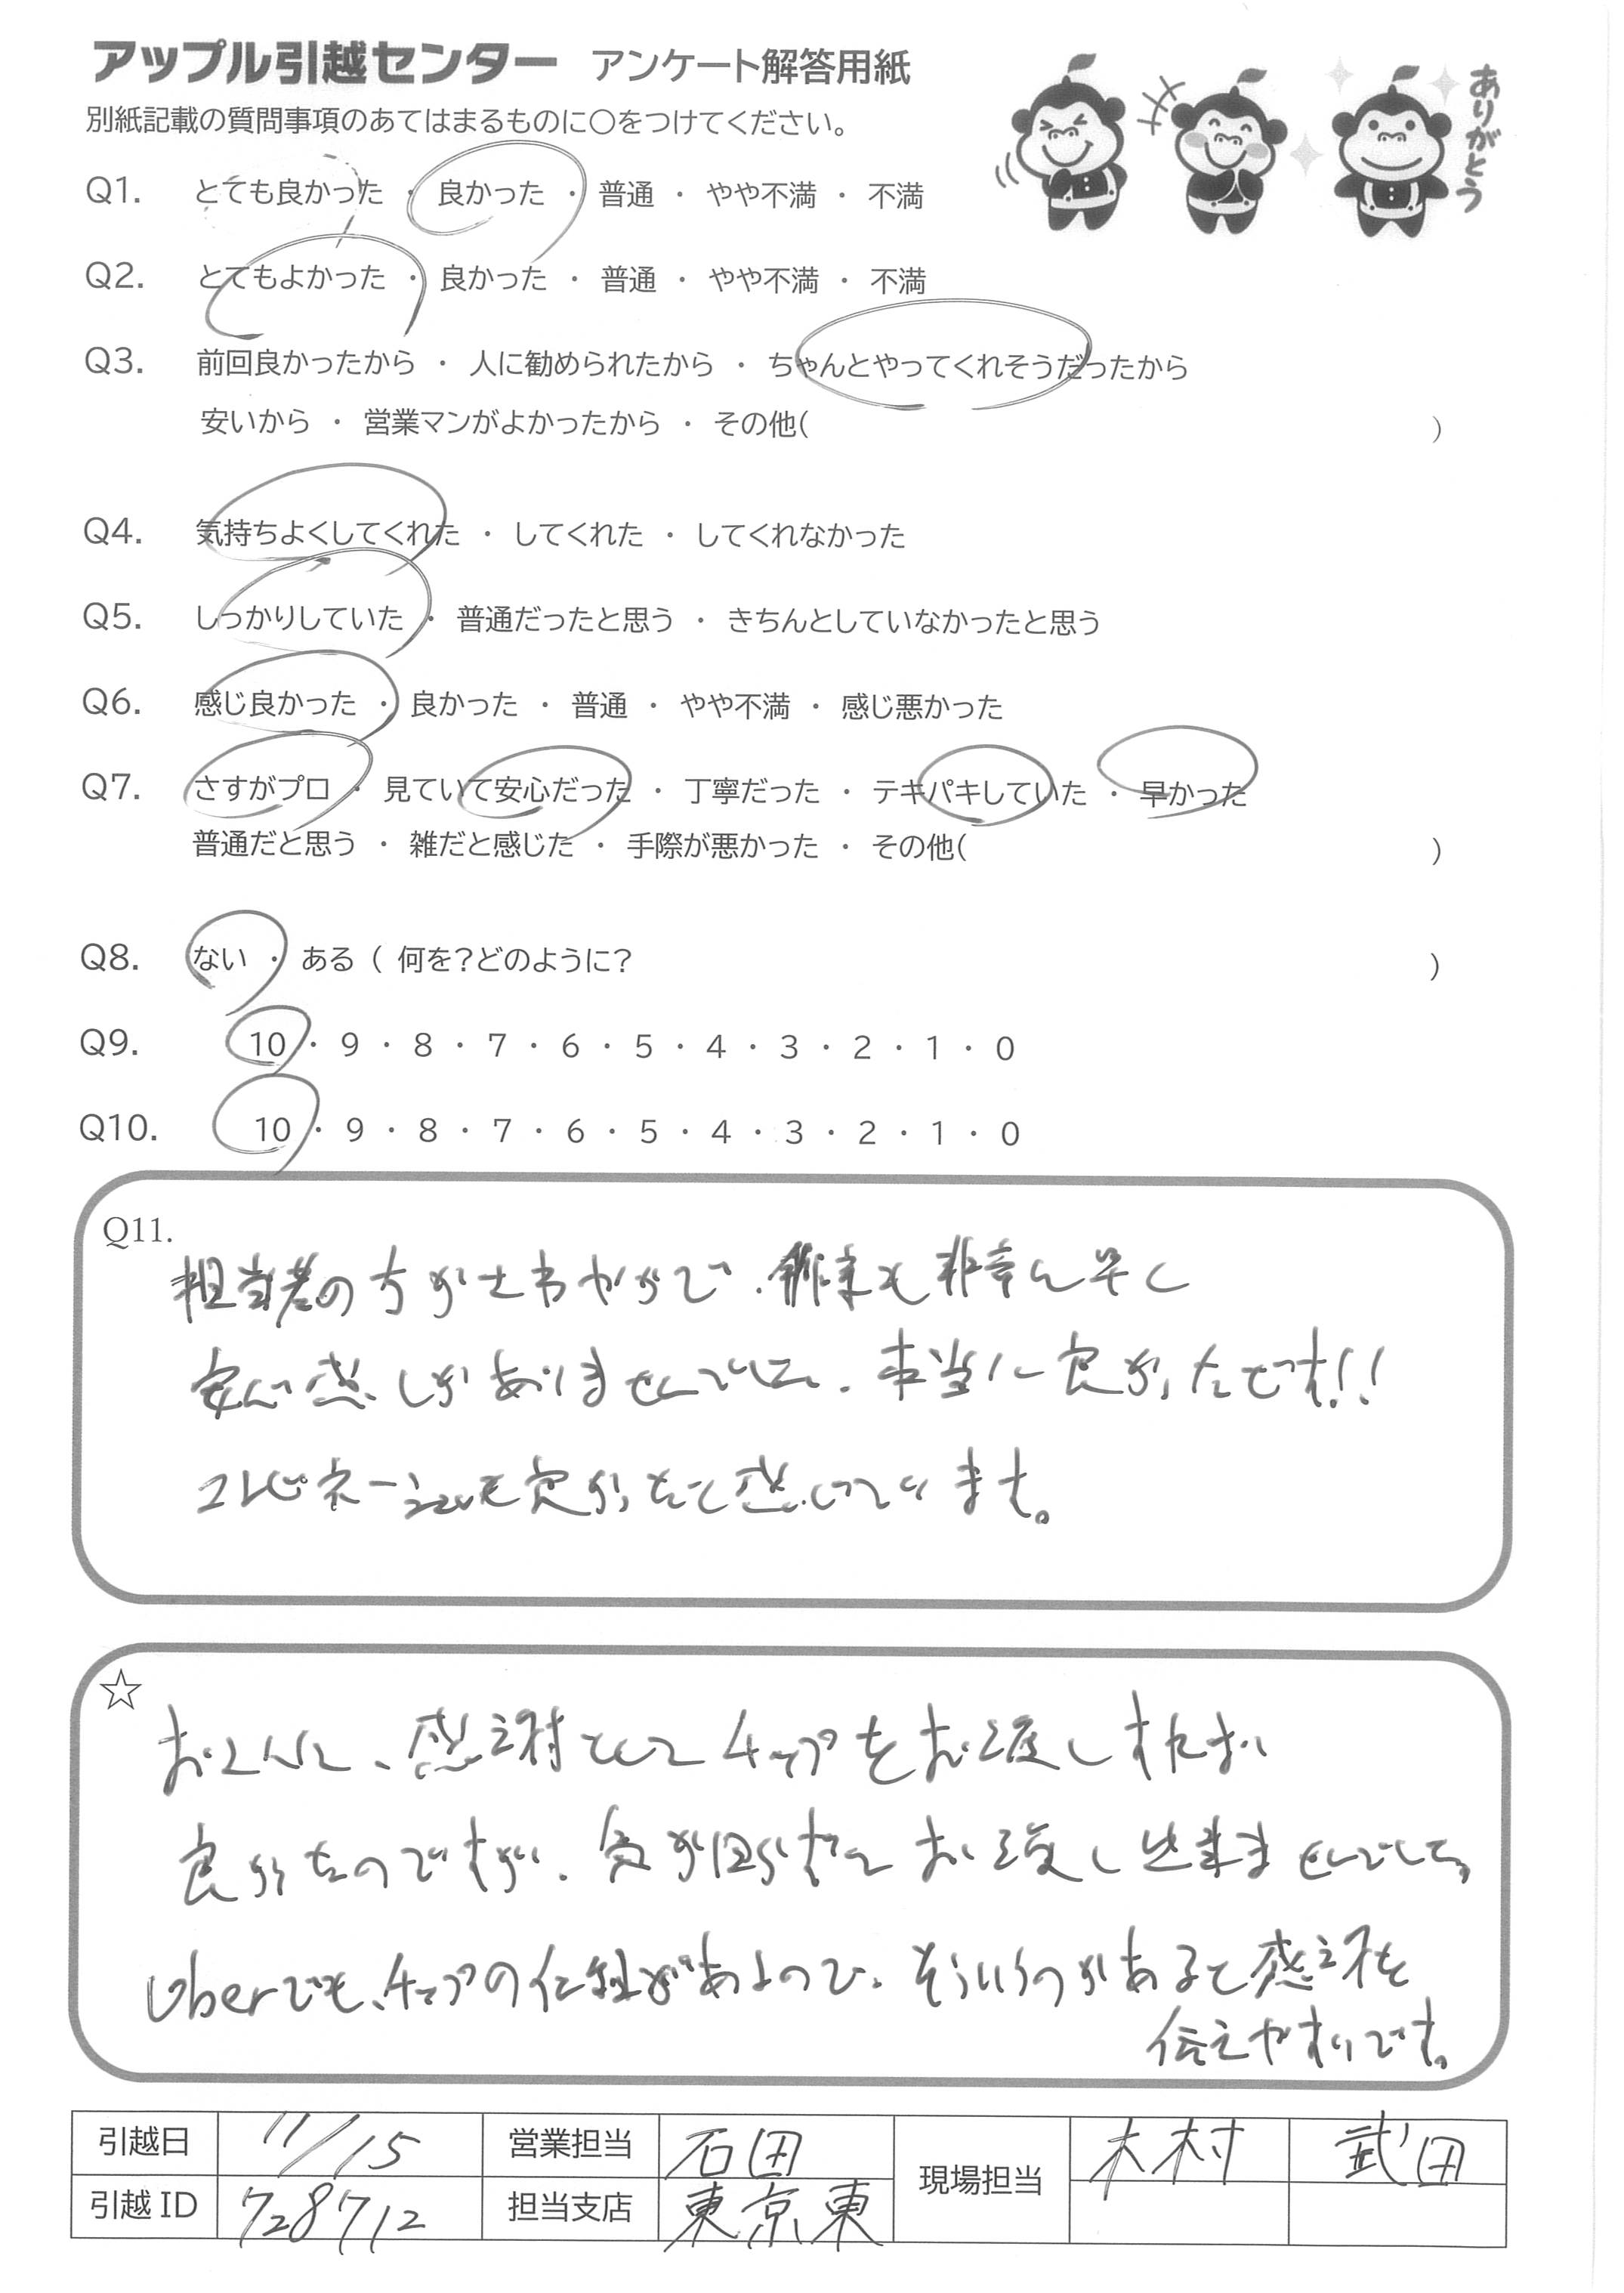 アップル引越センター アンケート解答用紙
別紙記載の質問事項のあてはまるものに○をつけてください。
ありがとう
Q1. とても良かった ・ 良かった ・ 普通 ・ やや不満 ・ 不満
Q2. とてもよかった ・ 良かった ・ 普通 ・ やや不満 ・ 不満
Q3. 前回良かったから ・ 人に勧められたから ・ ちゃんとやってくれそうだったから
安いから ・ 営業マンがよかったから ・ その他( )
Q4. 気持ちよくしてくれた ・ してくれた ・ してくれなかった
Q5. しっかりしていた ・ 普通だったと思う ・ きちんとしていなかったと思う
Q6. 感じ良かった ・ 良かった ・ 普通 ・ やや不満 ・ 感じ悪かった
Q7. さすがプロ ・ 見ていて安心だった ・ 丁寧だった ・ テキパキしていた ・ 早かった
普通だと思う ・ 雑だと感じた ・ 手際が悪かった ・ その他( )
Q8. ない ・ ある ( 何を?どのように? )
Q9. 10 ・ 9 ・ 8 ・ 7 ・ 6 ・ 5 ・ 4 ・ 3 ・ 2 ・ 1 ・ 0
Q10. 10 ・ 9 ・ 8 ・ 7 ・ 6 ・ 5 ・ 4 ・ 3 ・ 2 ・ 1 ・ 0
Q11.
担当者の方がさわやかで、作業も非常に早く
安心感しかありませんでした。本当に良かったです!!
コンビネーションも良かったと感じています。
☆
感謝としてチップをお渡しすれば
良かったのですが、気が回らずお渡し出来ませんでした。
Uberでも、チップの仕組があるので、そういうのがあると感謝を
伝えやすいです。
引越日 11/15 営業担当 石田 現場担当 木村 武田
引越ID 728712 担当支店 東京東